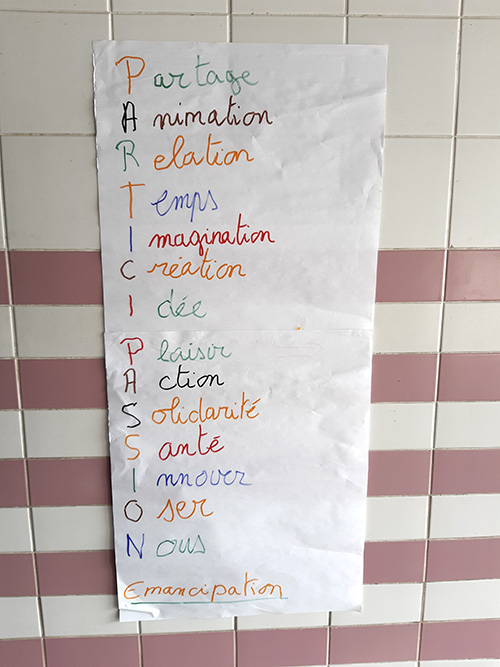 Partage
Animation
Relation
Temps
Imagination
Création
Idée
Plaisir
Action
Solidarité
Santé
Innover
Oser
Nous
Emancipation